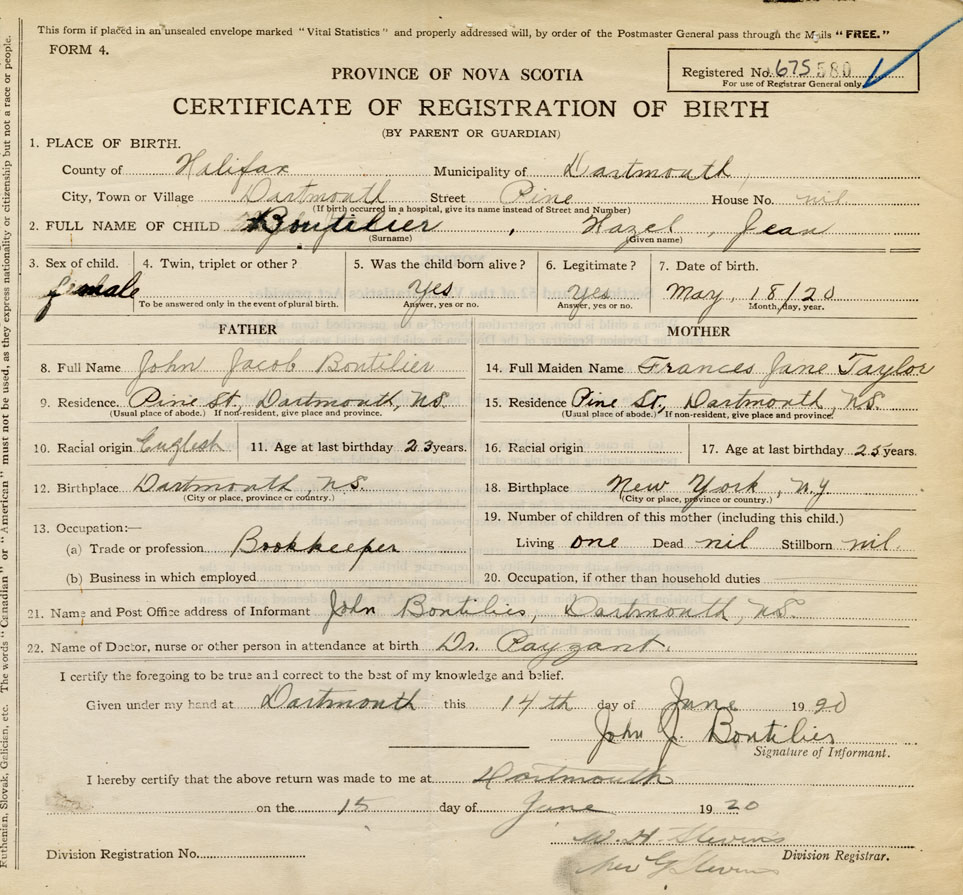 This form if placed in an unsealed envelope marked "Vital Statistics" and properly addressed will, by order of the Postmaster General pass through the Mails "FREE."
FORM 4.
Registered No. 675580
For use of Registrar General only
PROVINCE OF NOVA SCOTIA
CERTIFICATE OF REGISTRATION OF BIRTH
(BY PARENT OR GUARDIAN)
1. PLACE OF BIRTH.
County of Halifax Municipality of Dartmouth
City, Town or Village Dartmouth Street Pine House No. nil
(If birth occurred in a hospital, give its name instead of Street and Number)
2. FULL NAME OF CHILD Boutilier, Hazel, Jean
(Surname) (Given name)
3. Sex of child. 4. Twin, triplet or other? 5. Was the child born alive? 6. Legitimate? 7. Date of birth.
female Yes Yes May, 18/20
To be answered only in the event of plural birth. Answer, yes or no. Answer, yes or no. Month, day, year.
FATHER MOTHER
8. Full Name John Jacob Boutilier 14. Full Maiden Name Frances Jane Taylor
9. Residence. Pine St., Dartmouth, N.S. 15. Residence Pine St., Dartmouth, N.S.
(Usual place of abode.) If non-resident, give place and province. (Usual place of abode.) If non-resident, give place and province.
10. Racial origin English 11. Age at last birthday 23 years. 16. Racial origin 17. Age at last birthday 25 years.
12. Birthplace Dartmouth, N.S. 18. Birthplace New York, N.Y.
(City or place, province or country.) (City or place, province or country.)
13. Occupation:— 19. Number of children of this mother (including this child.)
(a) Trade or profession Bookkeeper Living one Dead nil Stillborn nil.
(b) Business in which employed 20. Occupation, if other than household duties
21. Name and Post Office address of Informant John Boutilier, Dartmouth, N.S.
22. Name of Doctor, nurse or other person in attendance at birth Dr. Payzant.
I certify the foregoing to be true and correct to the best of my knowledge and belief.
Given under my hand at Dartmouth this 14th day of June 1920
John J. Boutilier
Signature of Informant.
I hereby certify that the above return was made to me at Dartmouth
on the 15 day of June 1920
W. H. Stevens
Stevens
Division Registration No. Division Registrar.
Ruthenian, Slovak, Galician, etc. The words "Canadian" or "American" must not be used, as they express nationality or citizenship but not a race or people.